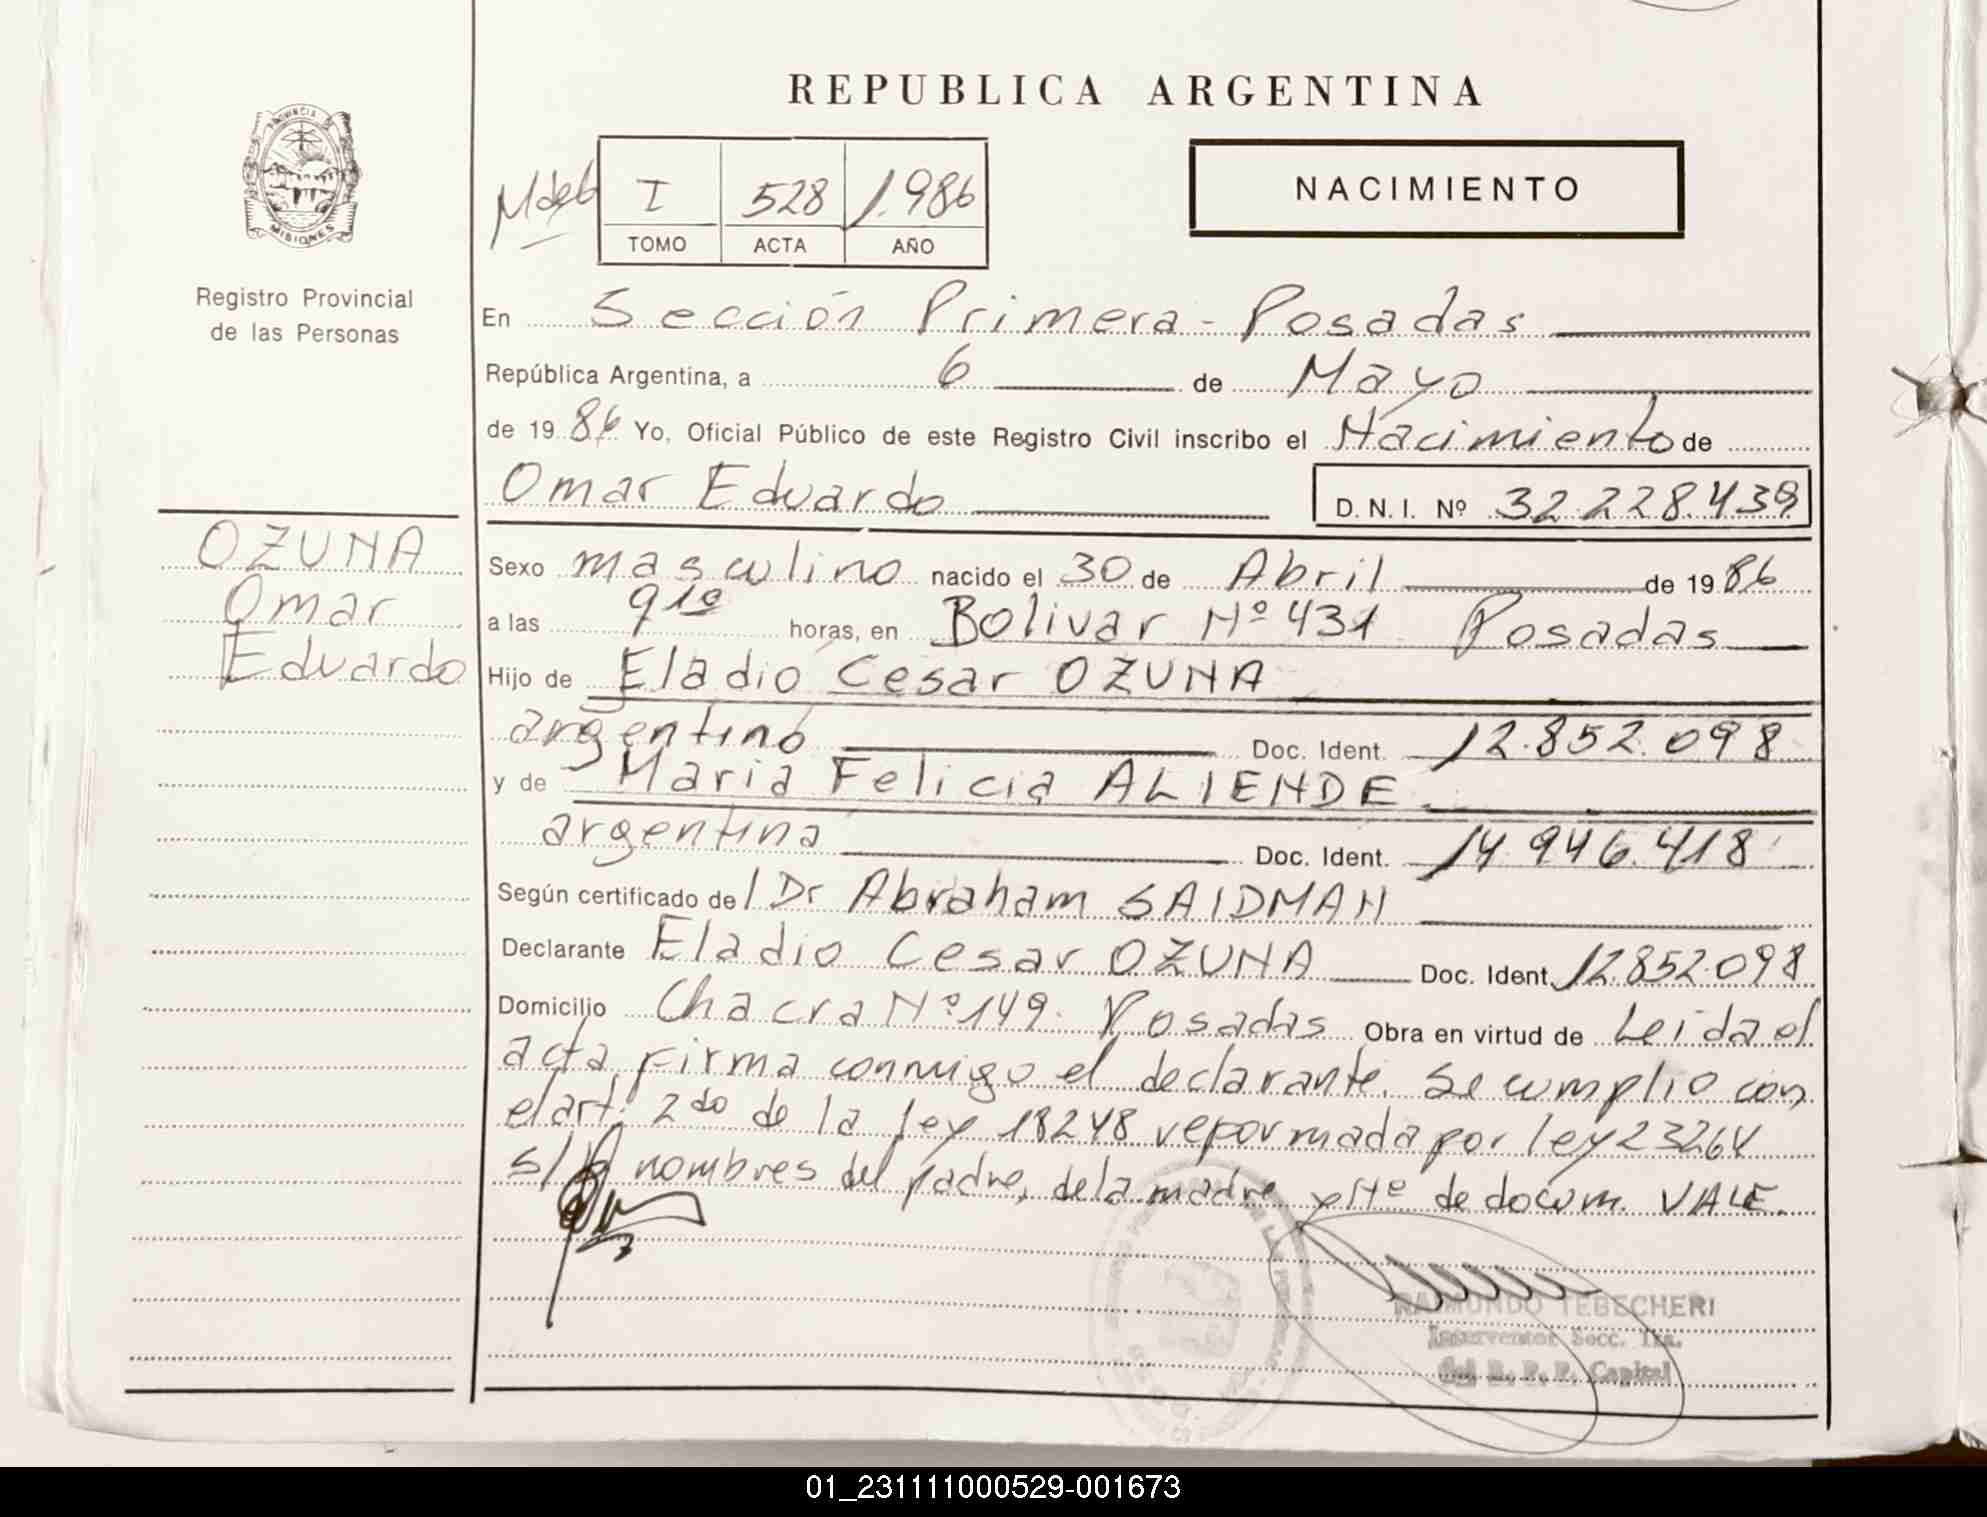 REPUBLICA ARGENTINA
PROVINCIA DE
MISIONES
Registro Provincial
de las Personas
I 528 1.986
TOMO ACTA AÑO
NACIMIENTO
En Sección Primera - Posadas
República Argentina, a 6 de Mayo
de 1986 Yo, Oficial Público de este Registro Civil inscribo el Nacimiento de
Omar Eduardo D. N. I. Nº 32.228.439
OZUNA
Omar
Eduardo
Sexo masculino nacido el 30 de Abril de 1986
a las 9 10 horas, en Bolivar Nº 431 Posadas
Hijo de Eladio Cesar OZUNA
argentino Doc. Ident. 12.852.098
y de Maria Felicia ALIENDE
argentina Doc. Ident. 14.946.418
Según certificado de l Dr Abraham SAIDMAN
Declarante Eladio Cesar OZUNA Doc. Ident. 12.852.098
Domicilio Chacra Nº 149. Posadas Obra en virtud de Leida el
acta, firma conmigo el declarante. Se cumplio con
el art. 2do de la ley 18248 reformada por ley 23264
s/ nombres del padre, de la madre y Nº de docum. VALE.
RAIMUNDO TEBECHERI
Interventor Secc. 1ra.
del R. P. P. Capital
01_231111000529-001673